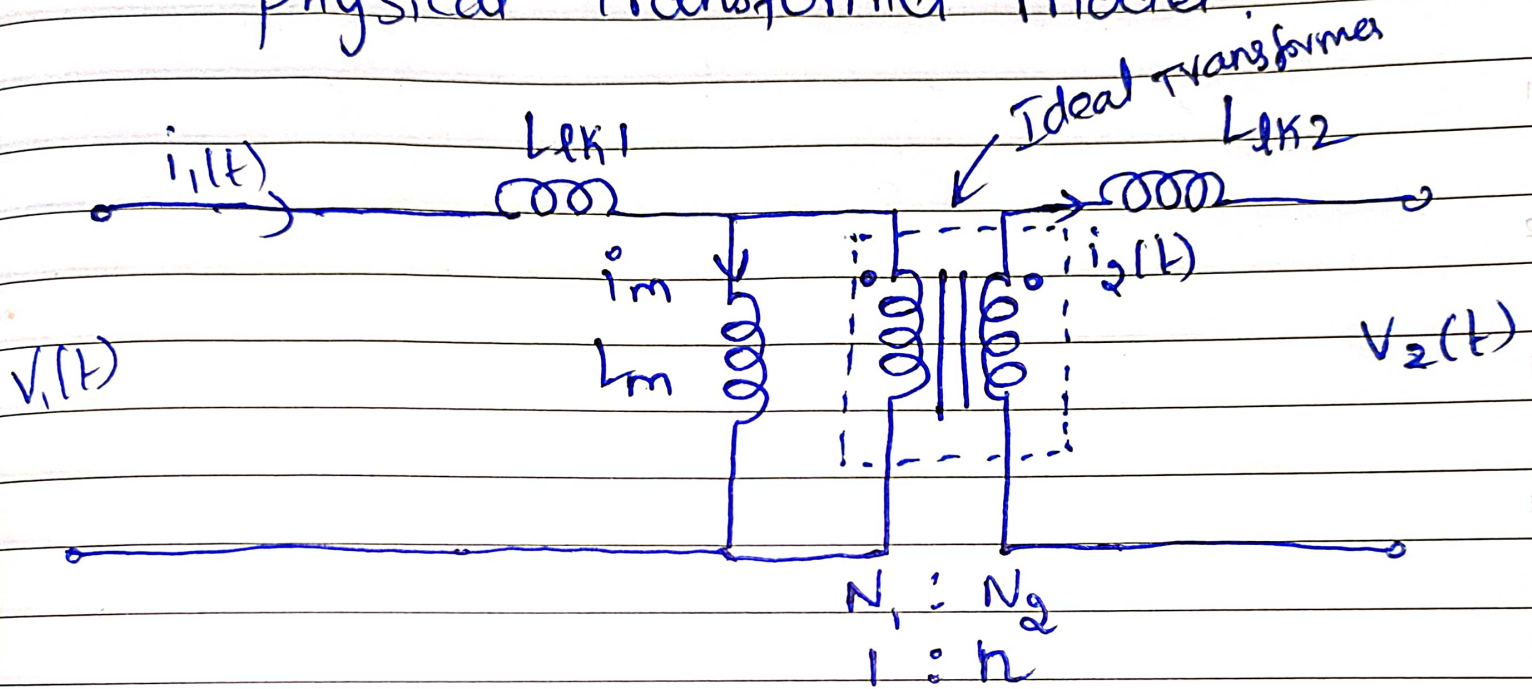 Physical Transformer Model
Ideal Transformer
i₁(t)
Llk1
Llk2
im
i₂(t)
V₁(t)
Lm
V₂(t)
N₁ : N₂
1 : n